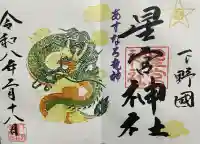 下野國
星宮神社
あすなろ龍神
令和八年二月十八日